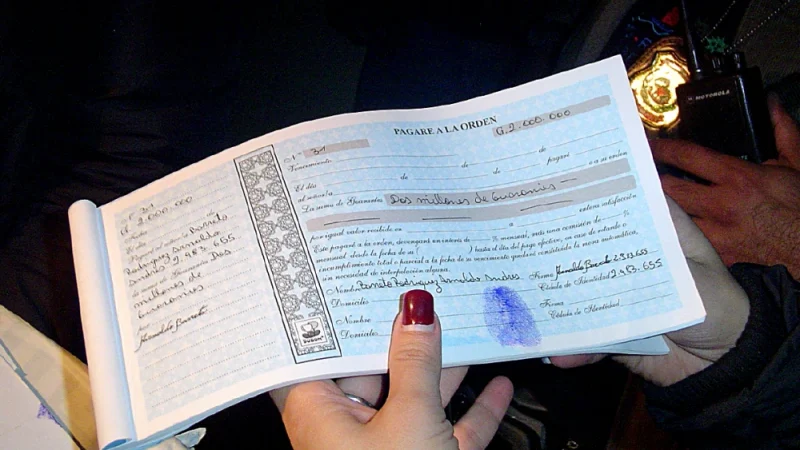 Nº 31
₲ 2.000.000
Fecha
El día
Pagaré al señor Barreto
Rodriguez Arnaldo
Andres 2.983.655
de Guaraníes Dos
millones de
Guaranies
por
Arnaldo Barreto
PAGARE A LA ORDEN
Nº 31 G. 2.000.000
Vencimiento de de
El día de de pagaré
al señor/a o a su orden
La suma de Guaraníes Dos millones de Guaranies
por igual valor recibido en a entera satisfacción
Este pagaré a la orden, devengará un interés de % mensual, más una comisión de %
mensual desde la fecha de su ( ) hasta el día del pago efectivo, en caso de retardo o
incumplimiento total o parcial a la fecha de su vencimiento quedará constituida la mora automática,
sin necesidad de interpelación alguna.
Nombre Barreto Rodriguez Arnaldo Andres Firma Arnaldo Barreto 2.983.655
Domicilio Cédula de Identidad 2.983.655
Nombre Firma
Domicilio Cédula de Identidad
MOTOROLA